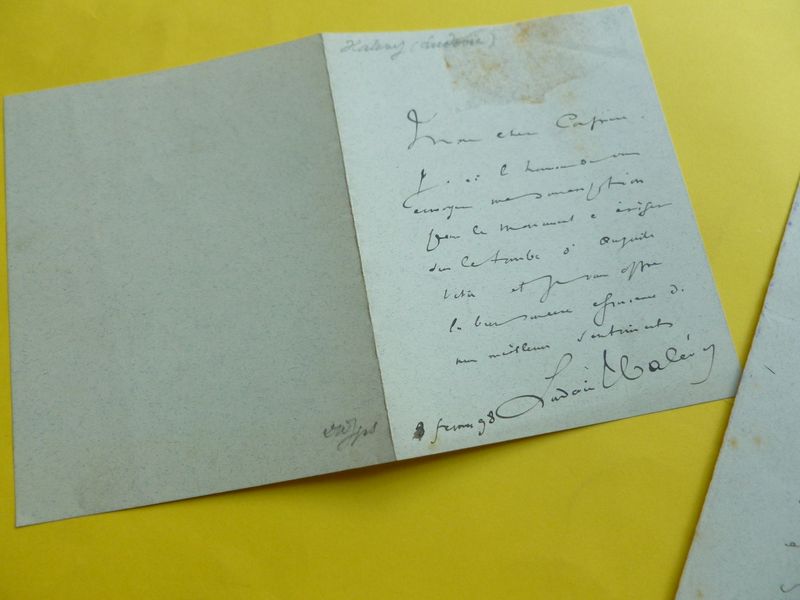 Halévy (Ludovic)
Mon cher
J'ai l'honneur de vous
envoyer ma souscription
pour le monument à ériger
sur la tombe d'Auguste
et je vous offre
la bien sincère expression de
mes meilleurs sentiments
Ludovic Halévy
8 février 98